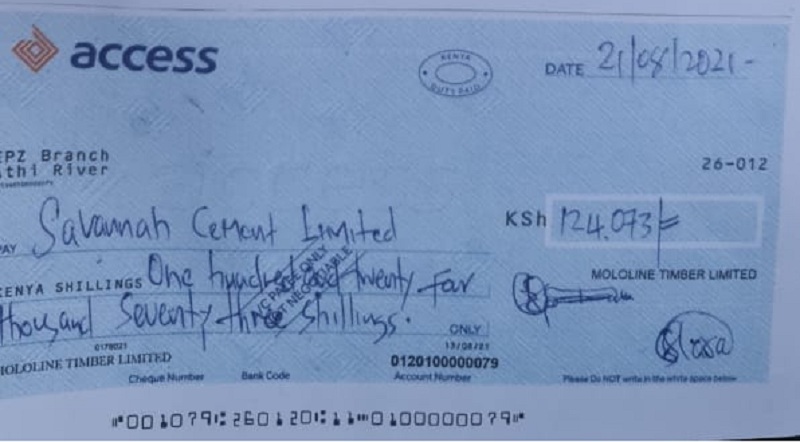 access
KENYA
DUTY PAID
DATE 21/08/2021-
EPZ Branch
Athi River
26-012
PAY Savannah Cement Limited
KSh 124.073/=
KENYA SHILLINGS One hundred and twenty Four
thousand Seventy three Shillings.
A/C PAYEE ONLY
NOT NEGOTIABLE
MOLOLINE TIMBER LIMITED
ONLY
0178021
13/08/21
MOLOLINE TIMBER LIMITED
0120100000079
Cheque Number
Bank Code
Account Number
Please Do NOT write in the white space below
⑈001079⑆260120⑆11⑈0100000079⑈